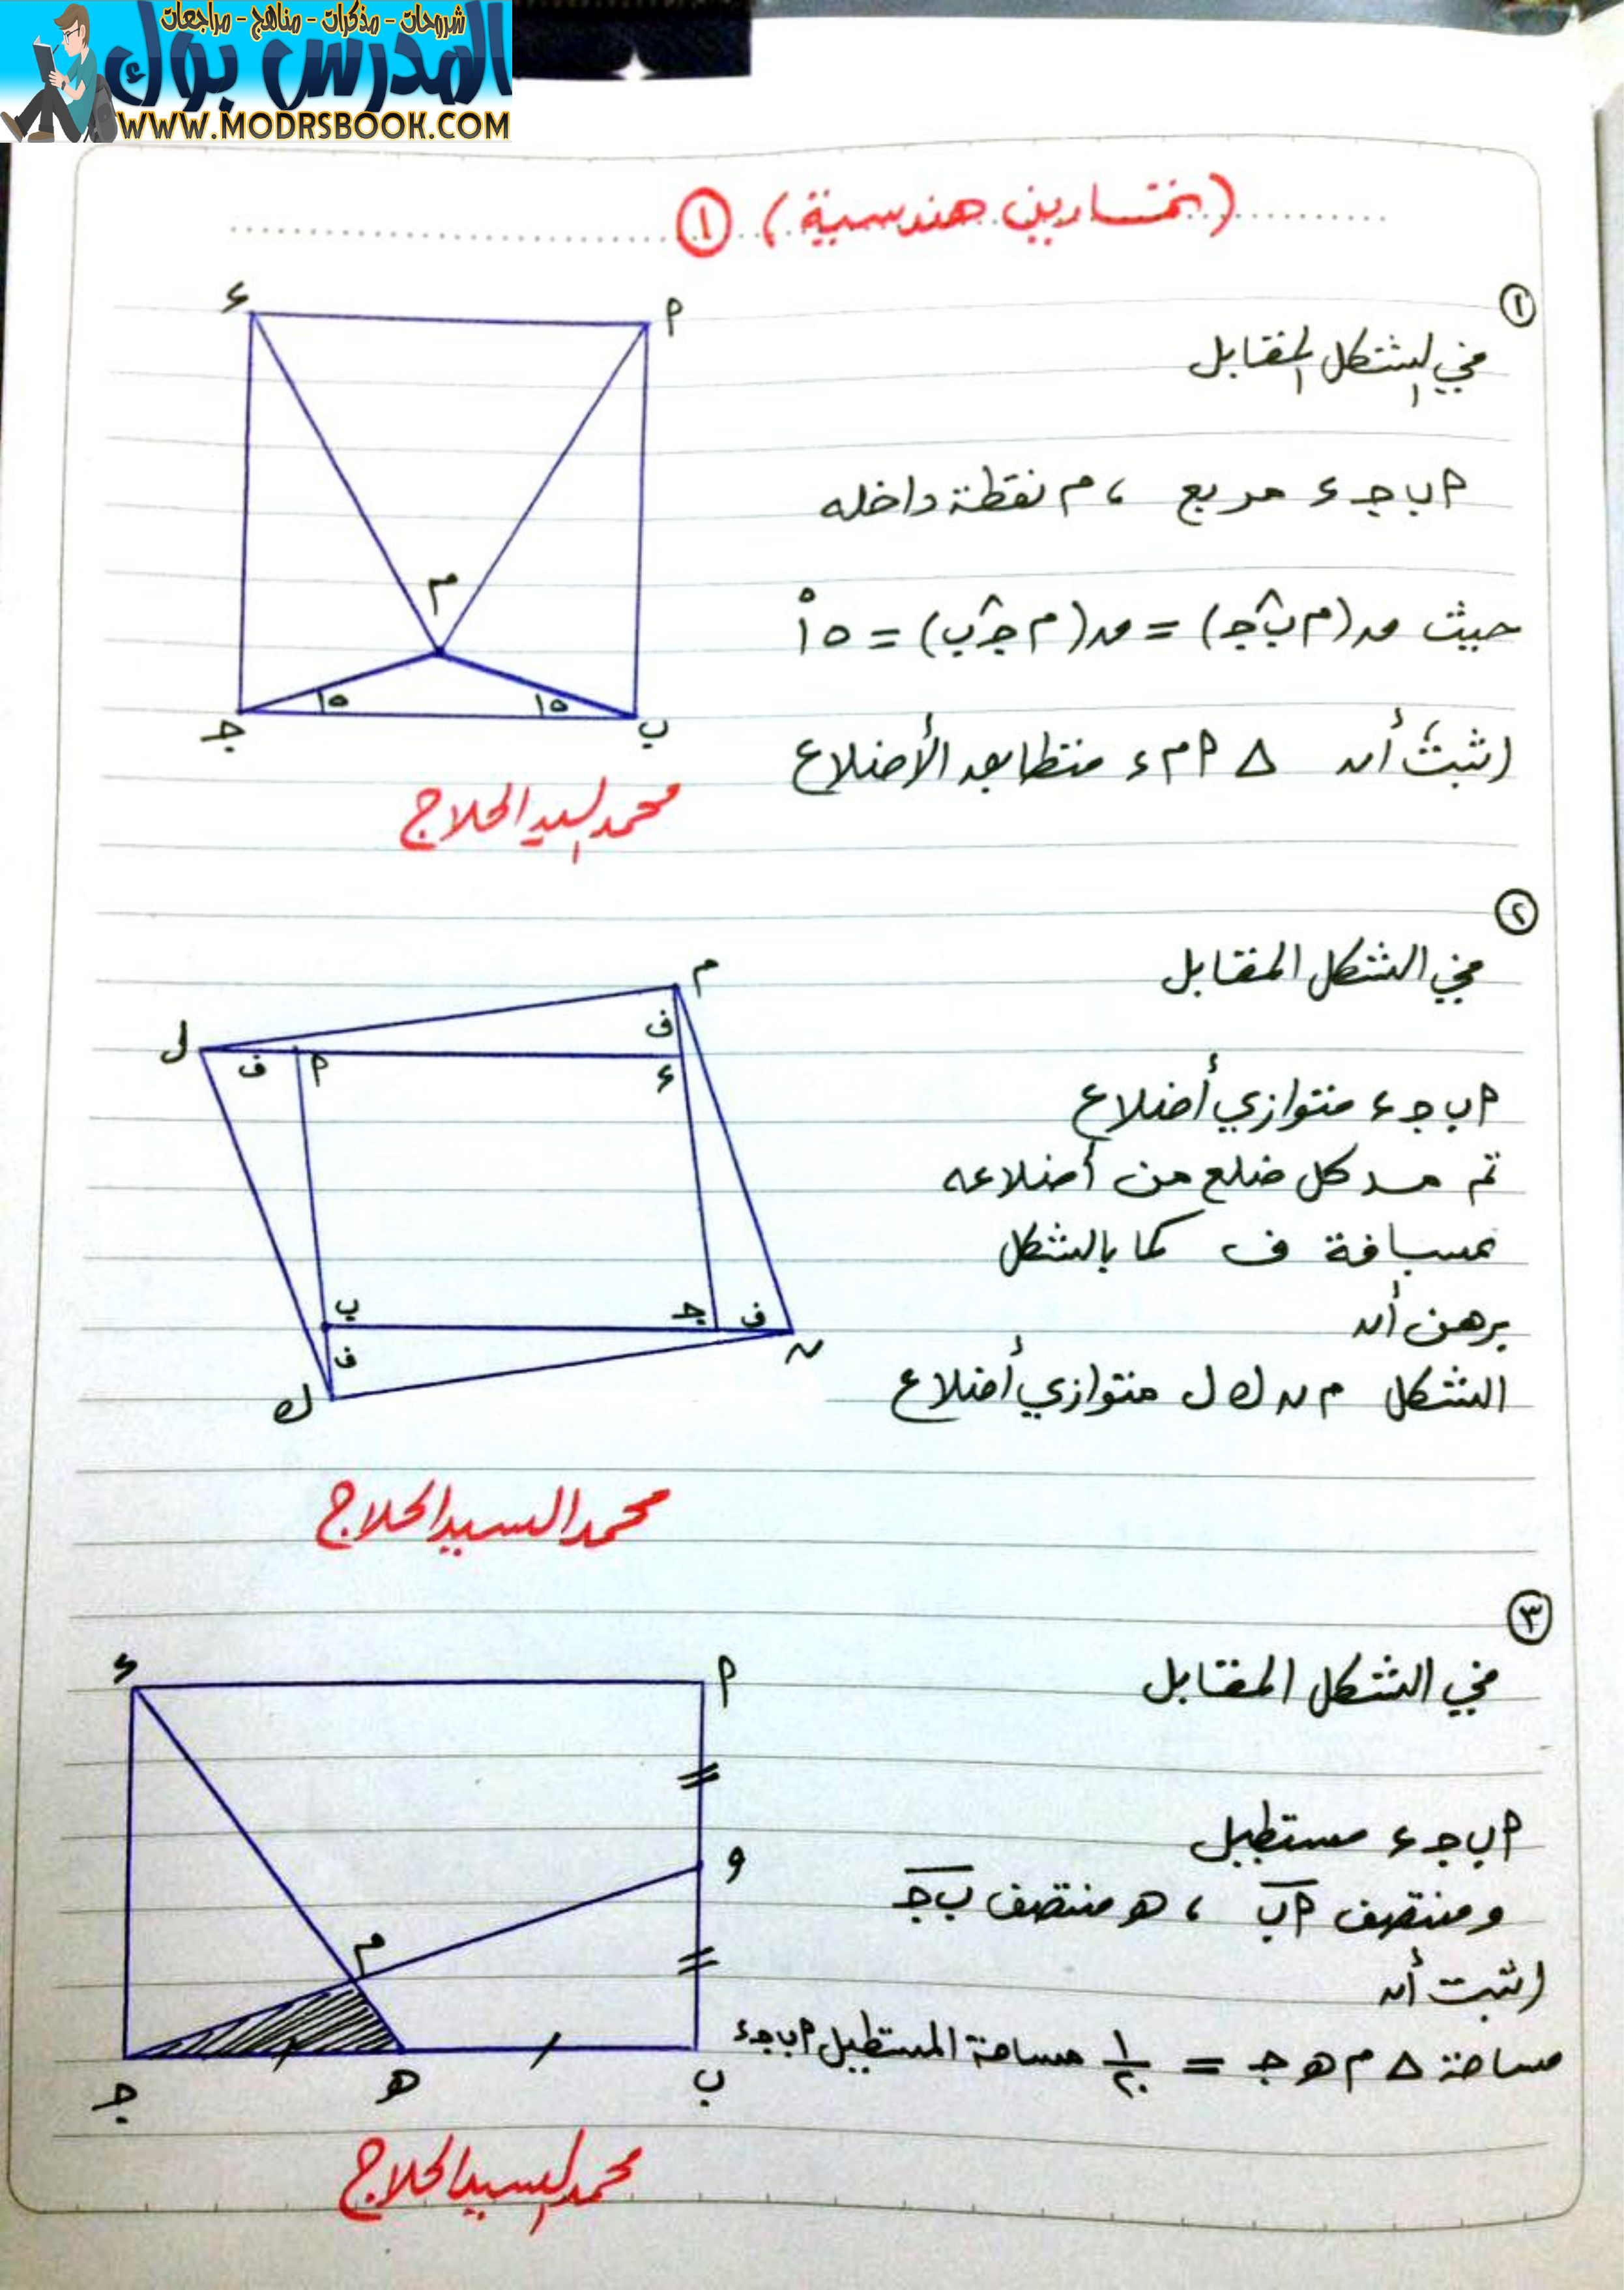 شروحات - مذكرات - مناهج - مراجعات
المدرس بوك
WWW.MODRSBOOK.COM
(تمارين هندسية) ١
١
في الشكل المقابل
٢ ب جـ ء مربع ، م نقطة داخله
حيث ق(م ب̂ جـ) = ق(م جـ̂ ب) = ١٥°
اثبت أن △ ٢ م ء متطابق الأضلاع
ء
٢
م
١٥
١٥
جـ
ب
محمد السيد الحلاج
٢
في الشكل المقابل
٢ ب جـ ء متوازي أضلاع
تم مد كل ضلع من أضلاعه
بمسافة ف كما بالشكل
برهن أن
الشكل م ن ك ل متوازي أضلاع
م
ف
ل
ف
٢
ء
ب
جـ
ف
ن
ف
ك
محمد السيد الحلاج
٣
في الشكل المقابل
٢ ب جـ ء مستطيل
و منتصف ٢ب ، هـ منتصف ب جـ
اثبت أن
مساحة △ م هـ جـ = ١/٢٠ مساحة المستطيل ٢ ب جـ ء
ء
٢
و
م
جـ
هـ
ب
محمد السيد الحلاج